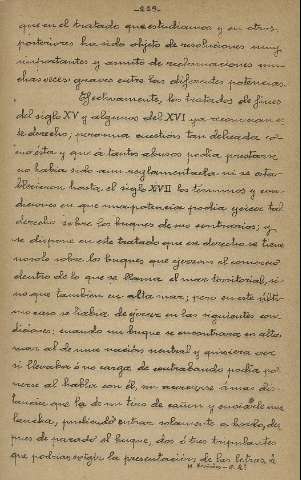 -229-
que en el tratado que estudiamos y en otros
posteriores ha sido objeto de resoluciones muy
importantes y asunto de reclamaciones mu-
chas veces graves entre las diferentes potencias.
Efectivamente, los tratados de fines
del siglo XV y algunos del XVI ya reconocian es-
te derecho; pero una cuestion tan delicada co-
mo ésta y que á tantos abusos podia prestarse
no habia sido aun reglamentada ni se esta-
blecieron hasta el siglo XVII los términos y con-
diciones en que una potencia podia ejercer tal
derecho sobre los buques de sus contrarios; y
se dispone en este tratado que ese derecho se tiene
no solo sobre los buques que ejerzan el comercio
dentro de lo que se llama el mar territorial, si-
no que tambien en alta mar; pero en este últi-
mo caso se habia de ejercer en las siguientes con-
diciones: cuando un buque se encontrara en alta
mar al de una nación neutral y quisiera ver
si llevaba ó no carga de contrabando podia po-
nerse al habla con él, sin acercarse á mas dis-
tancia que la de un tiro de cañon y enviar una
lancha, pudiendo entrar solamente a bordo, des-
pues de parado el buque, dos ó tres tripulantes
que podrian exigir la presentacion de las letras, á